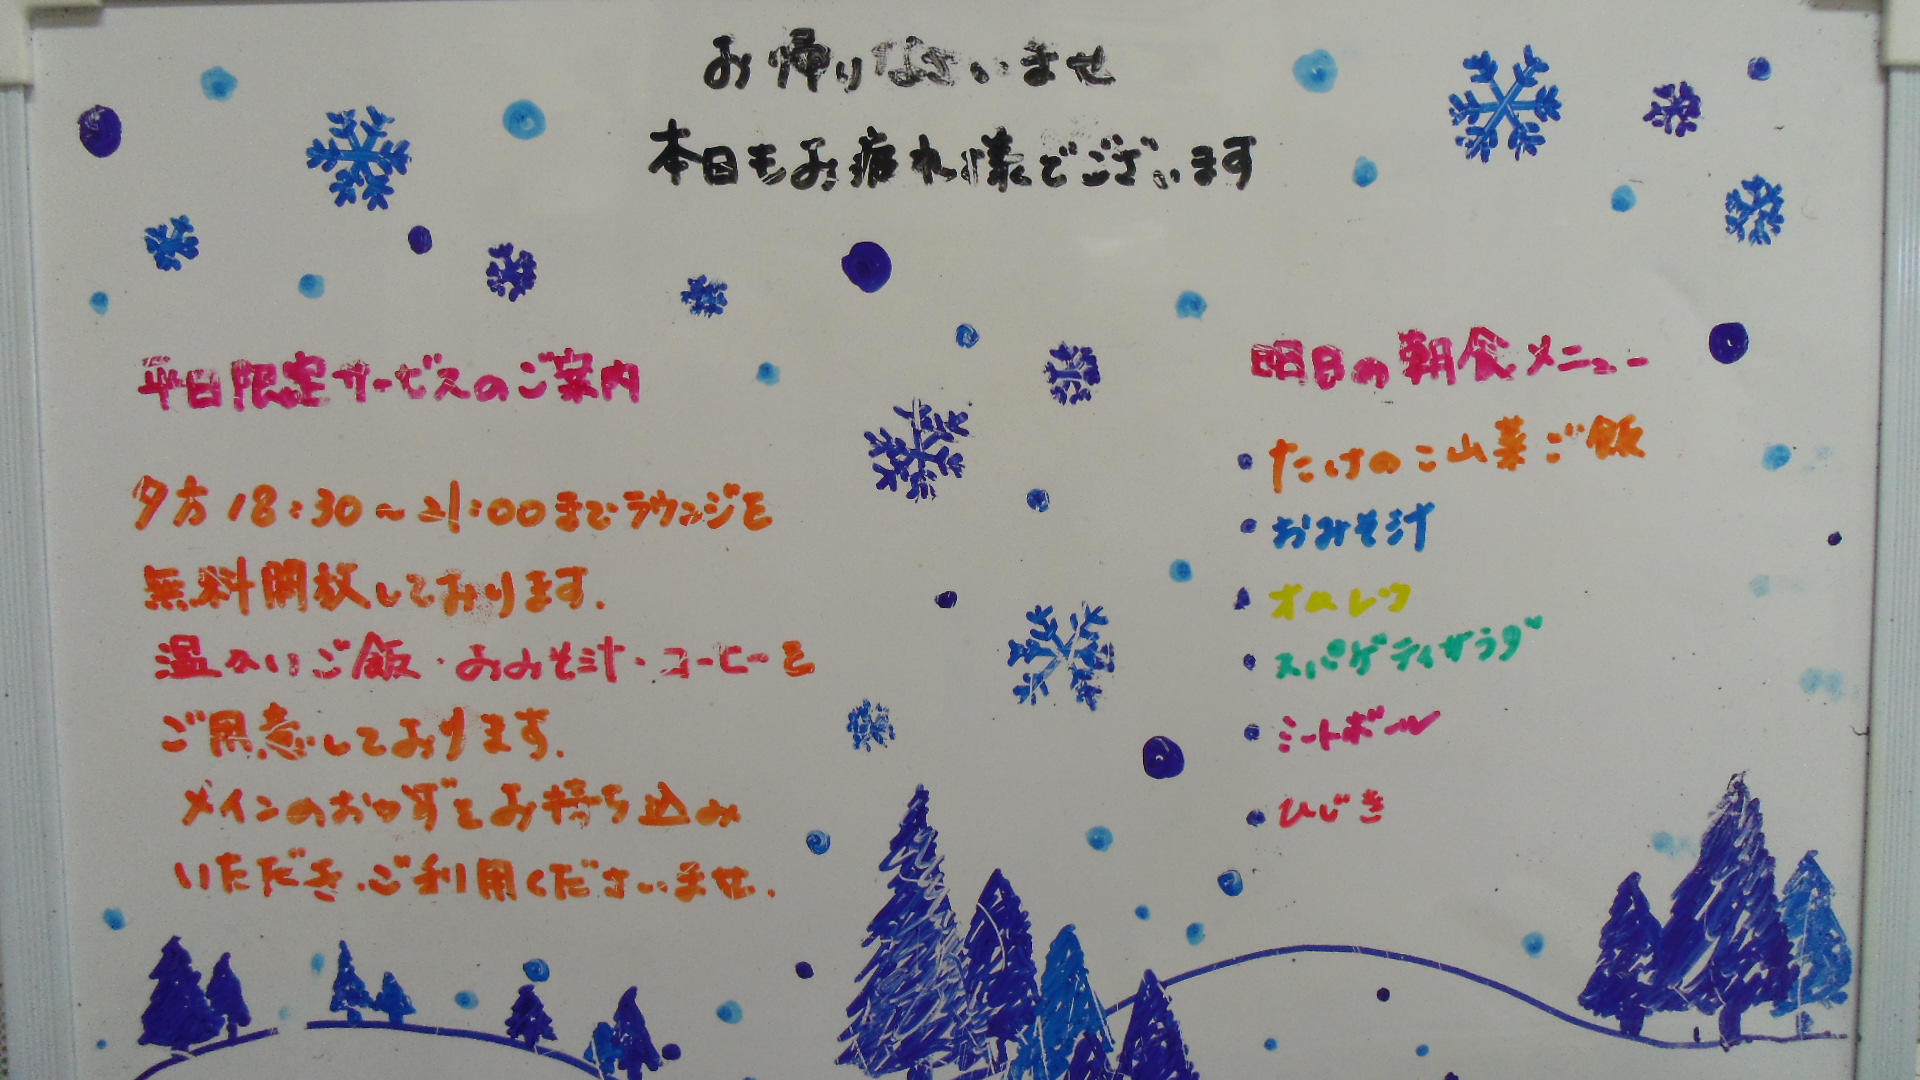 お帰りなさいませ
本日もお疲れ様でございます
平日限定サービスのご案内
夕方18:30〜21:00までラウンジを
無料開放しております.
温かいご飯・おみそ汁・コーヒーを
ご用意しております.
メインのおかずをお持ち込み
いただき、ご利用くださいませ.
明日の朝食メニュー
・たけのこ山菜ご飯
・おみそ汁
・オムレツ
・スパゲティサラダ
・ミートボール
・ひじき